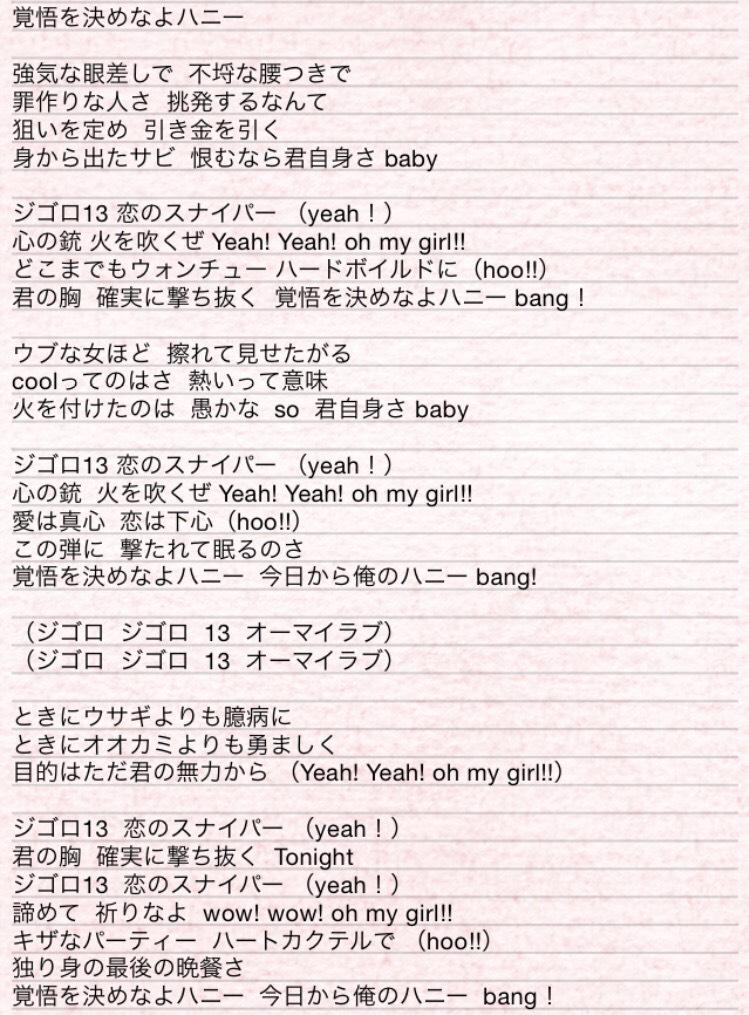 覚悟を決めなよハニー
強気な眼差しで 不埒な腰つきで
罪作りな人さ 挑発するなんて
狙いを定め 引き金を引く
身から出たサビ 恨むなら君自身さ baby
ジゴロ13 恋のスナイパー （yeah！）
心の銃 火を吹くぜ Yeah! Yeah! oh my girl!!
どこまでもウォンチュー ハードボイルドに（hoo!!）
君の胸 確実に撃ち抜く 覚悟を決めなよハニー bang！
ウブな女ほど 擦れて見せたがる
coolってのはさ 熱いって意味
火を付けたのは 愚かな so 君自身さ baby
ジゴロ13 恋のスナイパー （yeah！）
心の銃 火を吹くぜ Yeah! Yeah! oh my girl!!
愛は真心 恋は下心（hoo!!）
この弾に 撃たれて眠るのさ
覚悟を決めなよハニー 今日から俺のハニー bang!
（ジゴロ ジゴロ 13 オーマイラブ）
（ジゴロ ジゴロ 13 オーマイラブ）
ときにウサギよりも臆病に
ときにオオカミよりも勇ましく
目的はただ君の無力から （Yeah! Yeah! oh my girl!!）
ジゴロ13 恋のスナイパー （yeah！）
君の胸 確実に撃ち抜く Tonight
ジゴロ13 恋のスナイパー （yeah！）
諦めて 祈りなよ wow! wow! oh my girl!!
キザなパーティー ハートカクテルで （hoo!!）
独り身の最後の晩餐さ
覚悟を決めなよハニー 今日から俺のハニー bang！